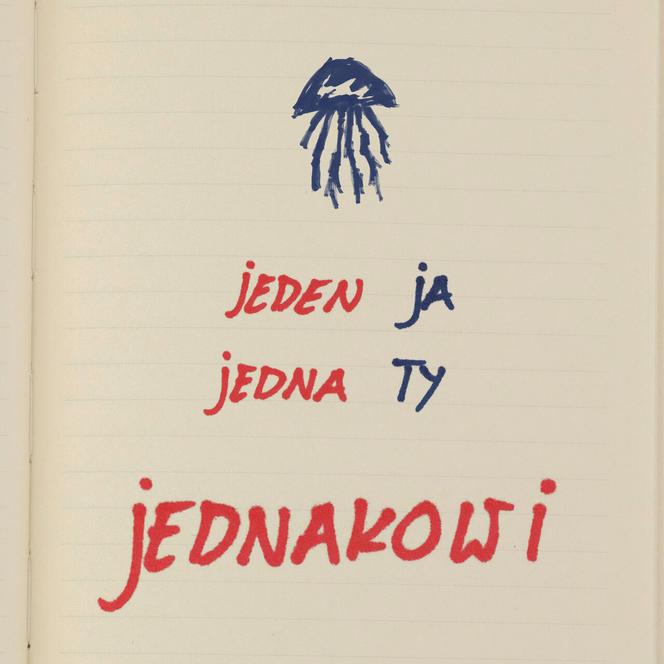 jEDEN jA
jEDNA TY
jEDNAKOWi